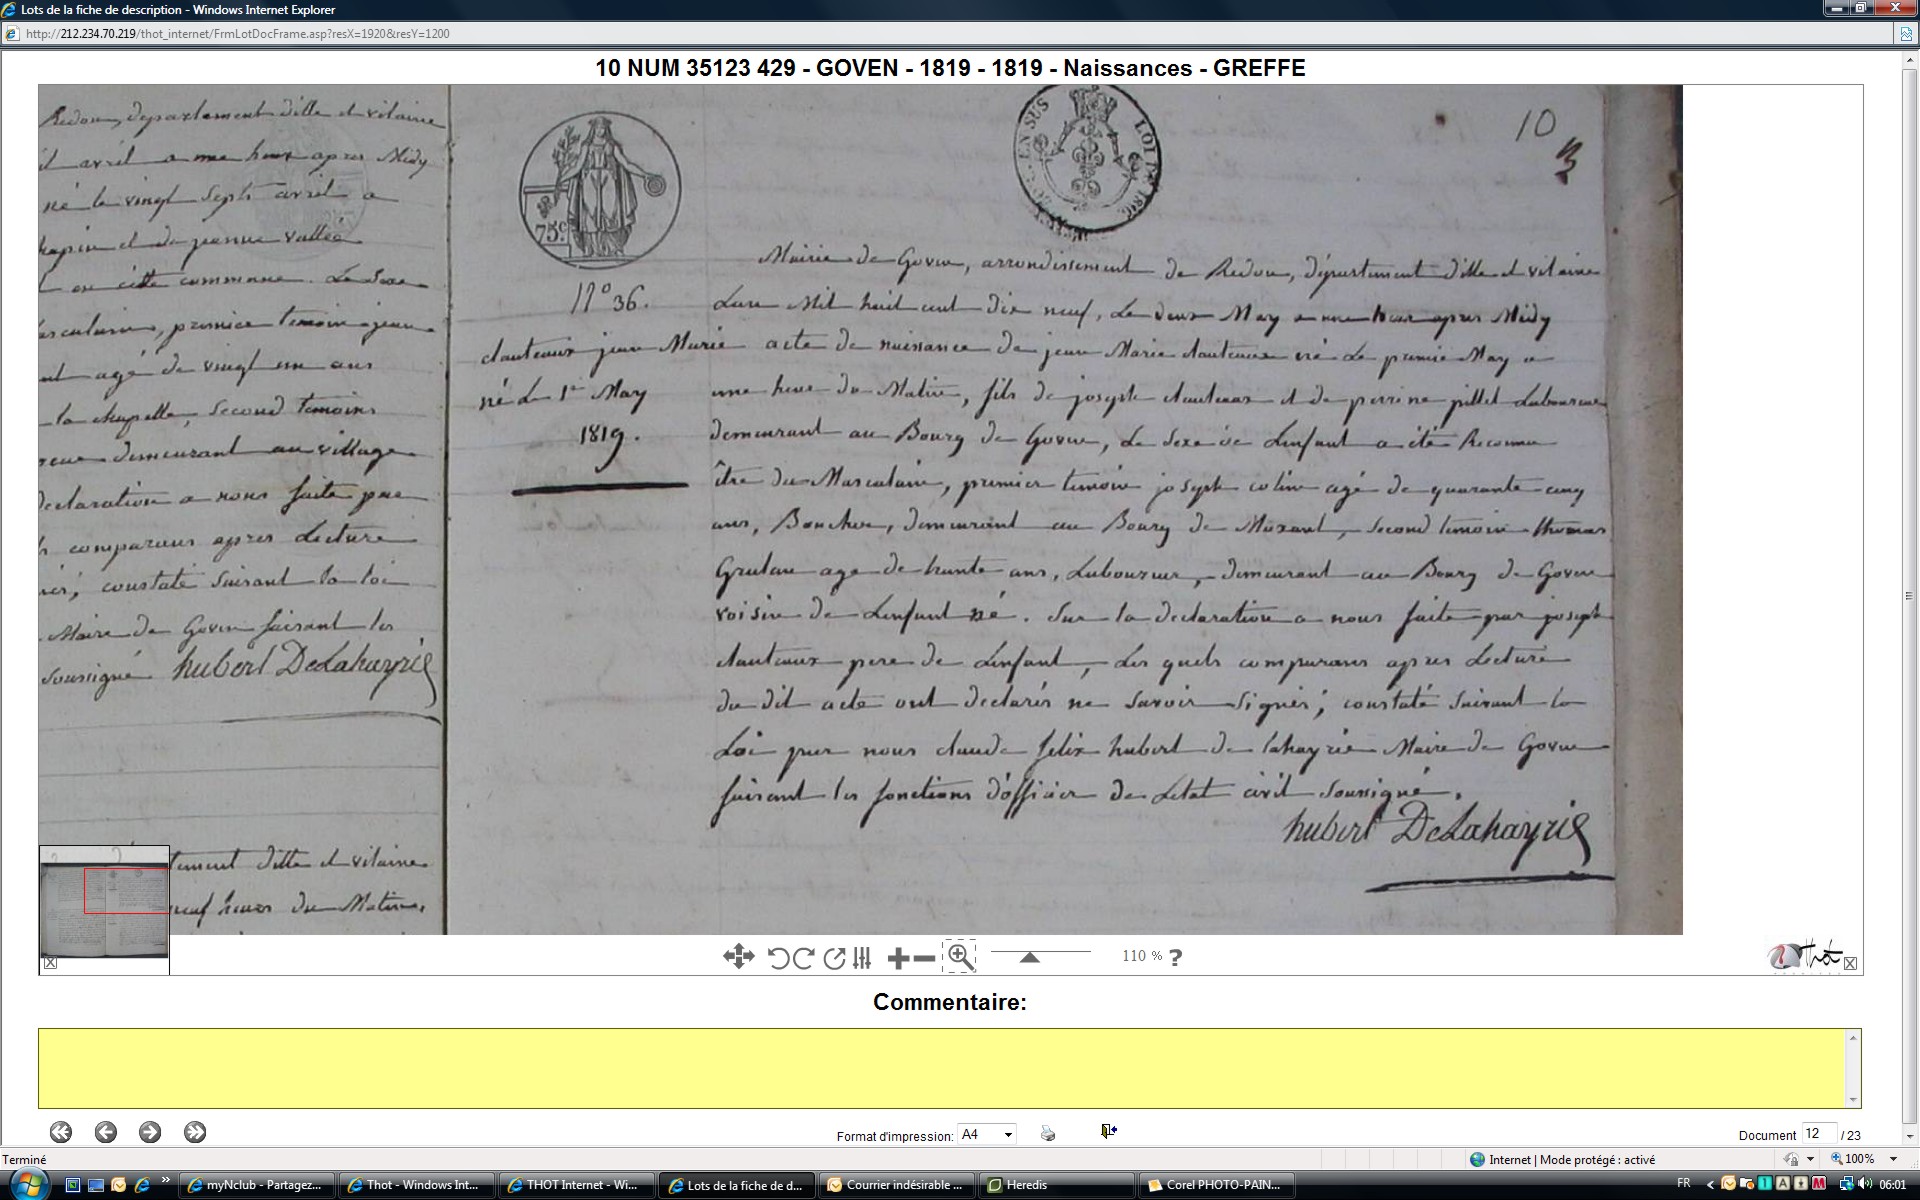 Lots de la fiche de description - Windows Internet Explorer
http://212.234.70.219/thot_internet/FrmLotDocFrame.asp?resX=1920&resY=1200
10 NUM 35123 429 - GOVEN - 1819 - 1819 - Naissances - GREFFE
Redon, département d'ille et vilaine
avril a une heure apres Midy
né le vingt Sept avril a
et de jeanne vallée
en cette commune. Le Sexe
premier temoin jean
agé de vingt un ans
la chapelle, second temoin
demeurant au village
declaration a nous faite par
comparans apres Lecture
constaté suivant la loi
Maire de Goven faisant les
soussigné hubert DeLahayrie
d'ille et vilaine
neuf heures du Matin,
75c.
EN SUS
LOI DE 1816
10
N° 36.
dauteaux jean Marie
né Le 1er May
1819.
Mairie de Goven, arrondissement de Redon, département d'ille et vilaine
Lan Mil huit cent dix neuf, Le deux May a une heure apres Midy
acte de naissance de jean Marie dauteaux né Le premier May a
une heure du Matin, fils de joseph dauteaux et de perrine pillet Laboureur
demeurant au Bourg de Goven, Le Sexe de Lenfant a été Reconnu
être du Masculain, premier temoin joseph colin agé de quarante cinq
ans, Boucher, demeurant au Bourg de Maxant, second temoin thomas
Grulau agé de trente ans, Laboureur, demeurant au Bourg de Goven
voisin de Lenfant né. Sur la declaration a nous faite par joseph
dauteaux pere de Lenfant, Les quels comparans apres Lecture
du dit acte ont declarés ne savoir signer; constaté suivant la
Loi par nous claude felix hubert de lahayrie Maire de Goven
faisant les fonctions d'officier de Letat civil soussigné.
hubert DeLahayrie
110 % ?
Thot
Commentaire:
Format d'impression: A4
Document 12 / 23
Terminé
Internet | Mode protégé : activé
100%
myNclub - Partagez...
Thot - Windows Int...
THOT Internet - Wi...
Lots de la fiche de d...
Courrier indésirable ...
Heredis
Corel PHOTO-PAIN...
FR
06:01